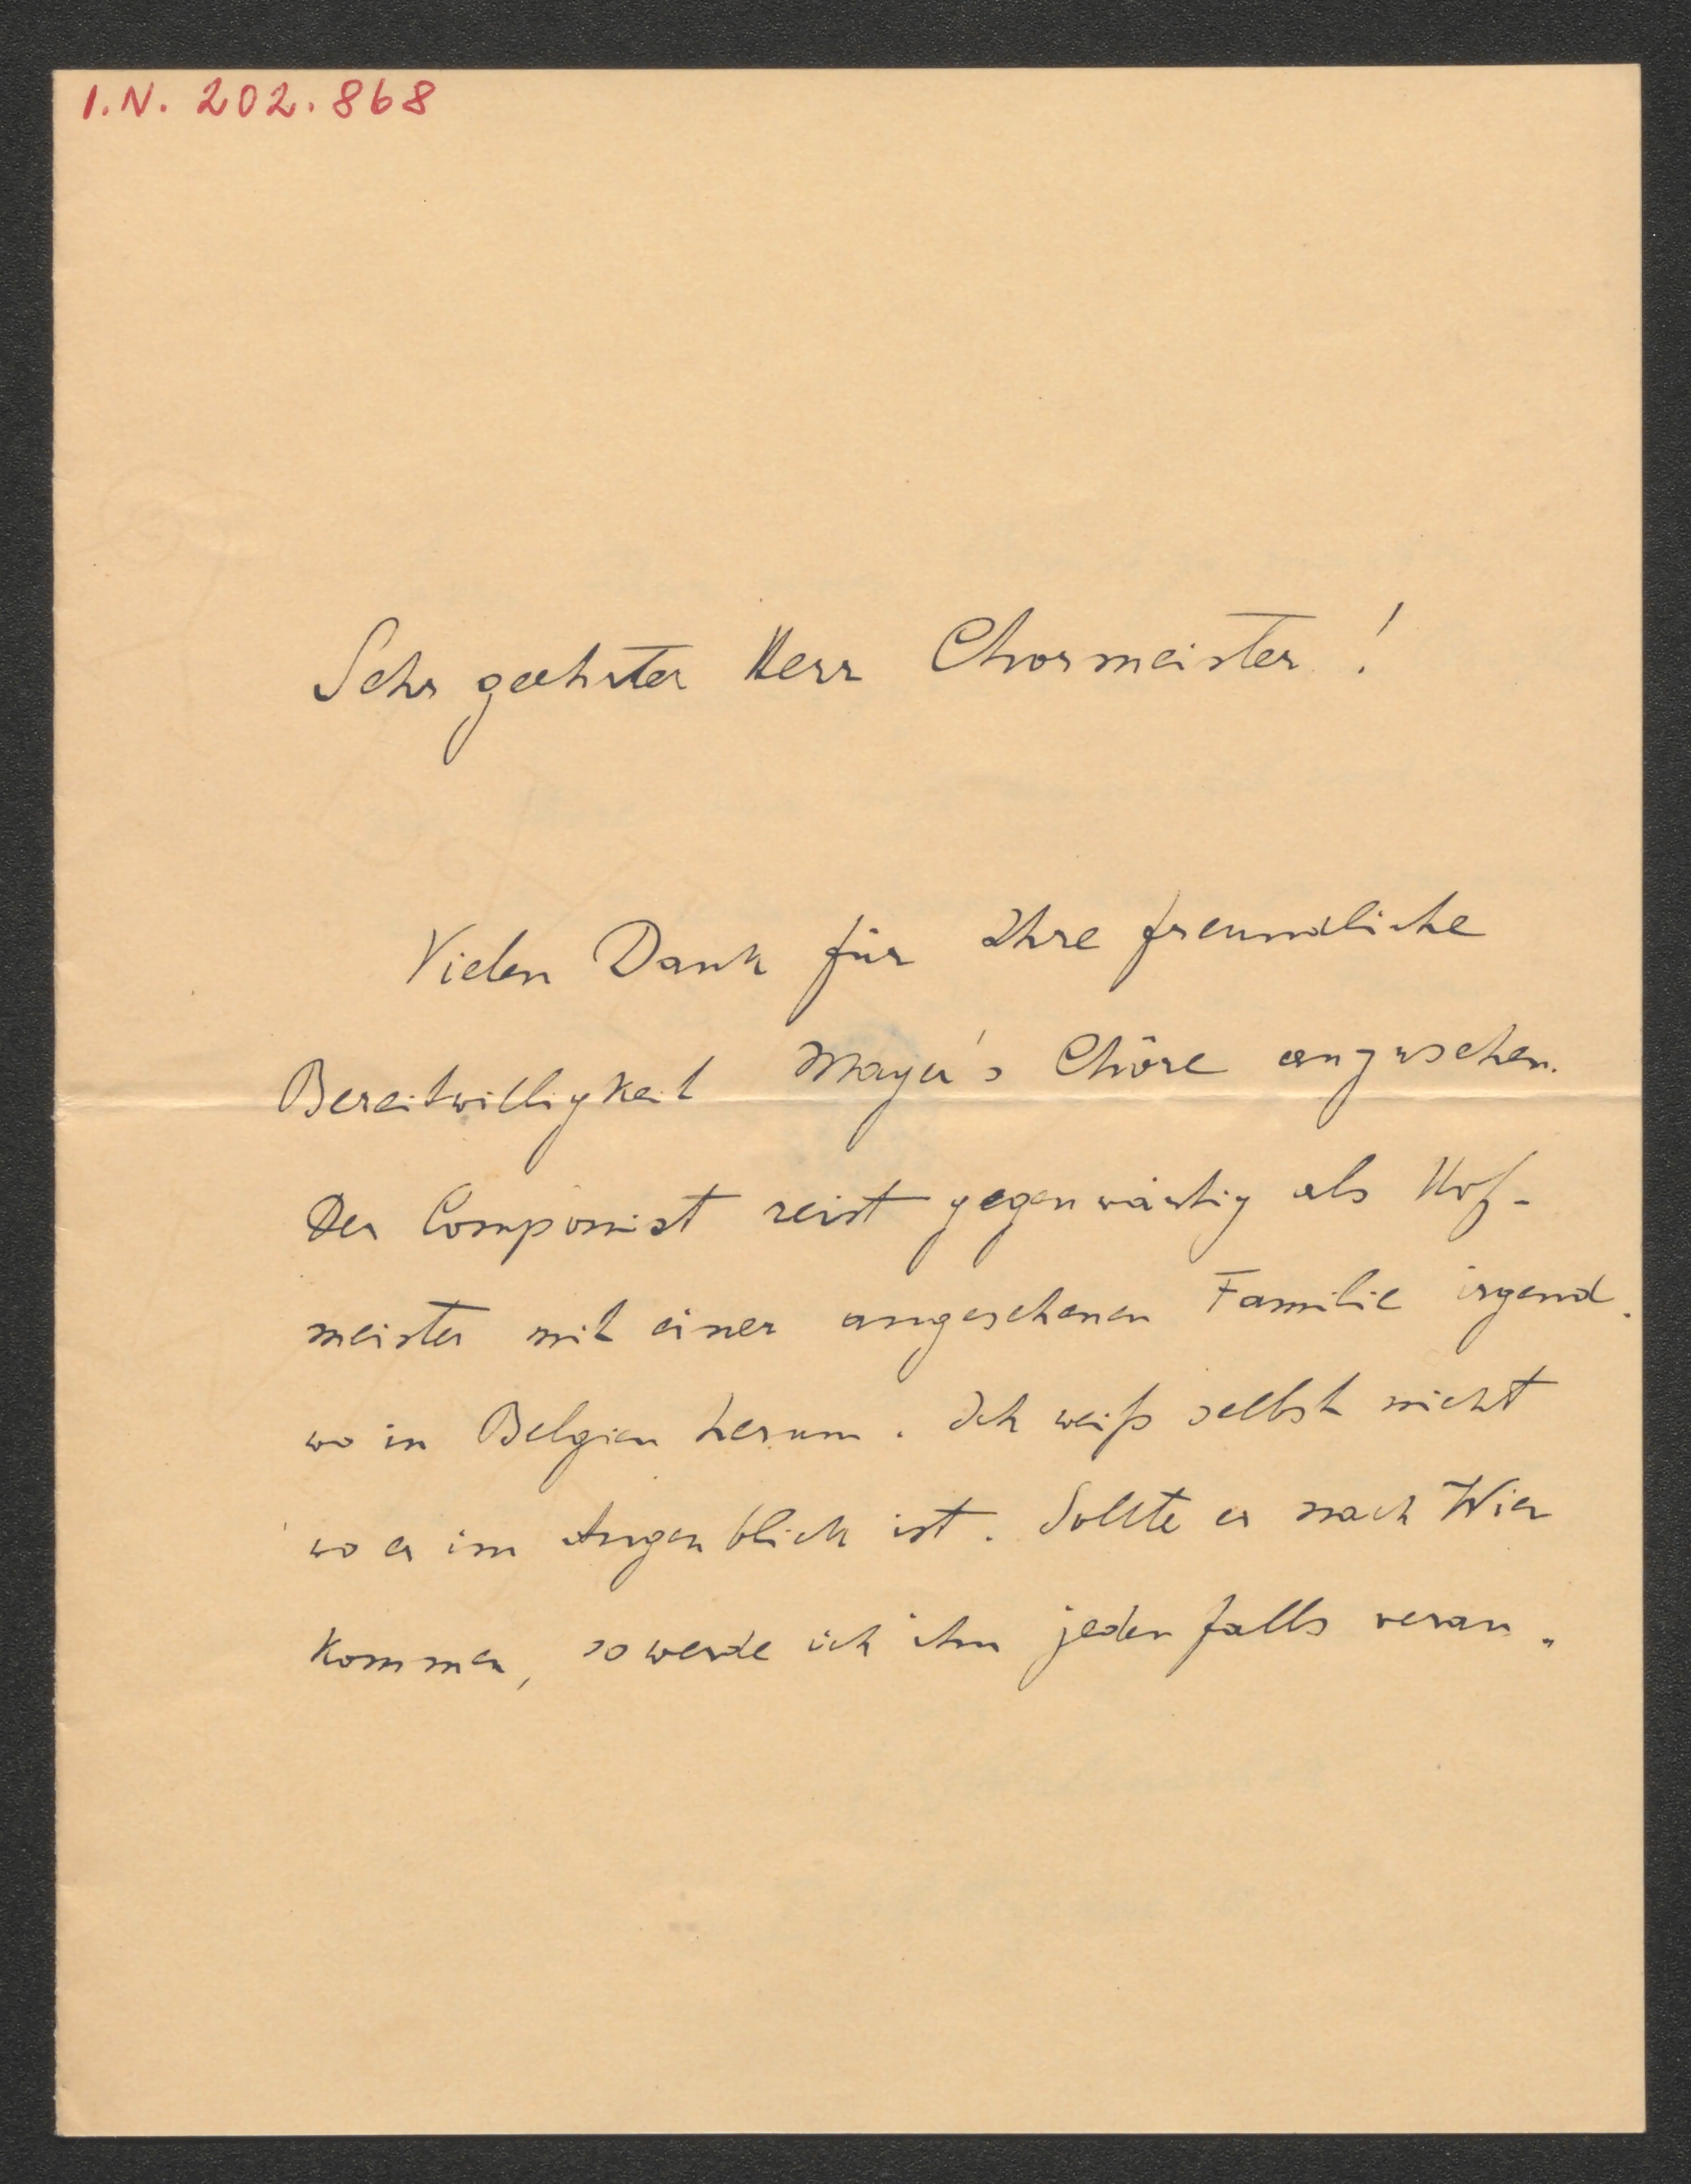 I.N. 202.868
Sehr geehrter Herr Chormeister!
Vielen Dank für Ihre freundliche
Bereitwilligkeit Mayer's Chöre anzusehen.
Der Componist reist gegenwärtig als Hof-
meister mit einer angesehenen Familie irgend-
wo in Belgien herum. Ich weiß selbst nicht
wo er im Augenblick ist. Sollte er nach Wien
kommen, so werde ich ihn jedenfalls veran-